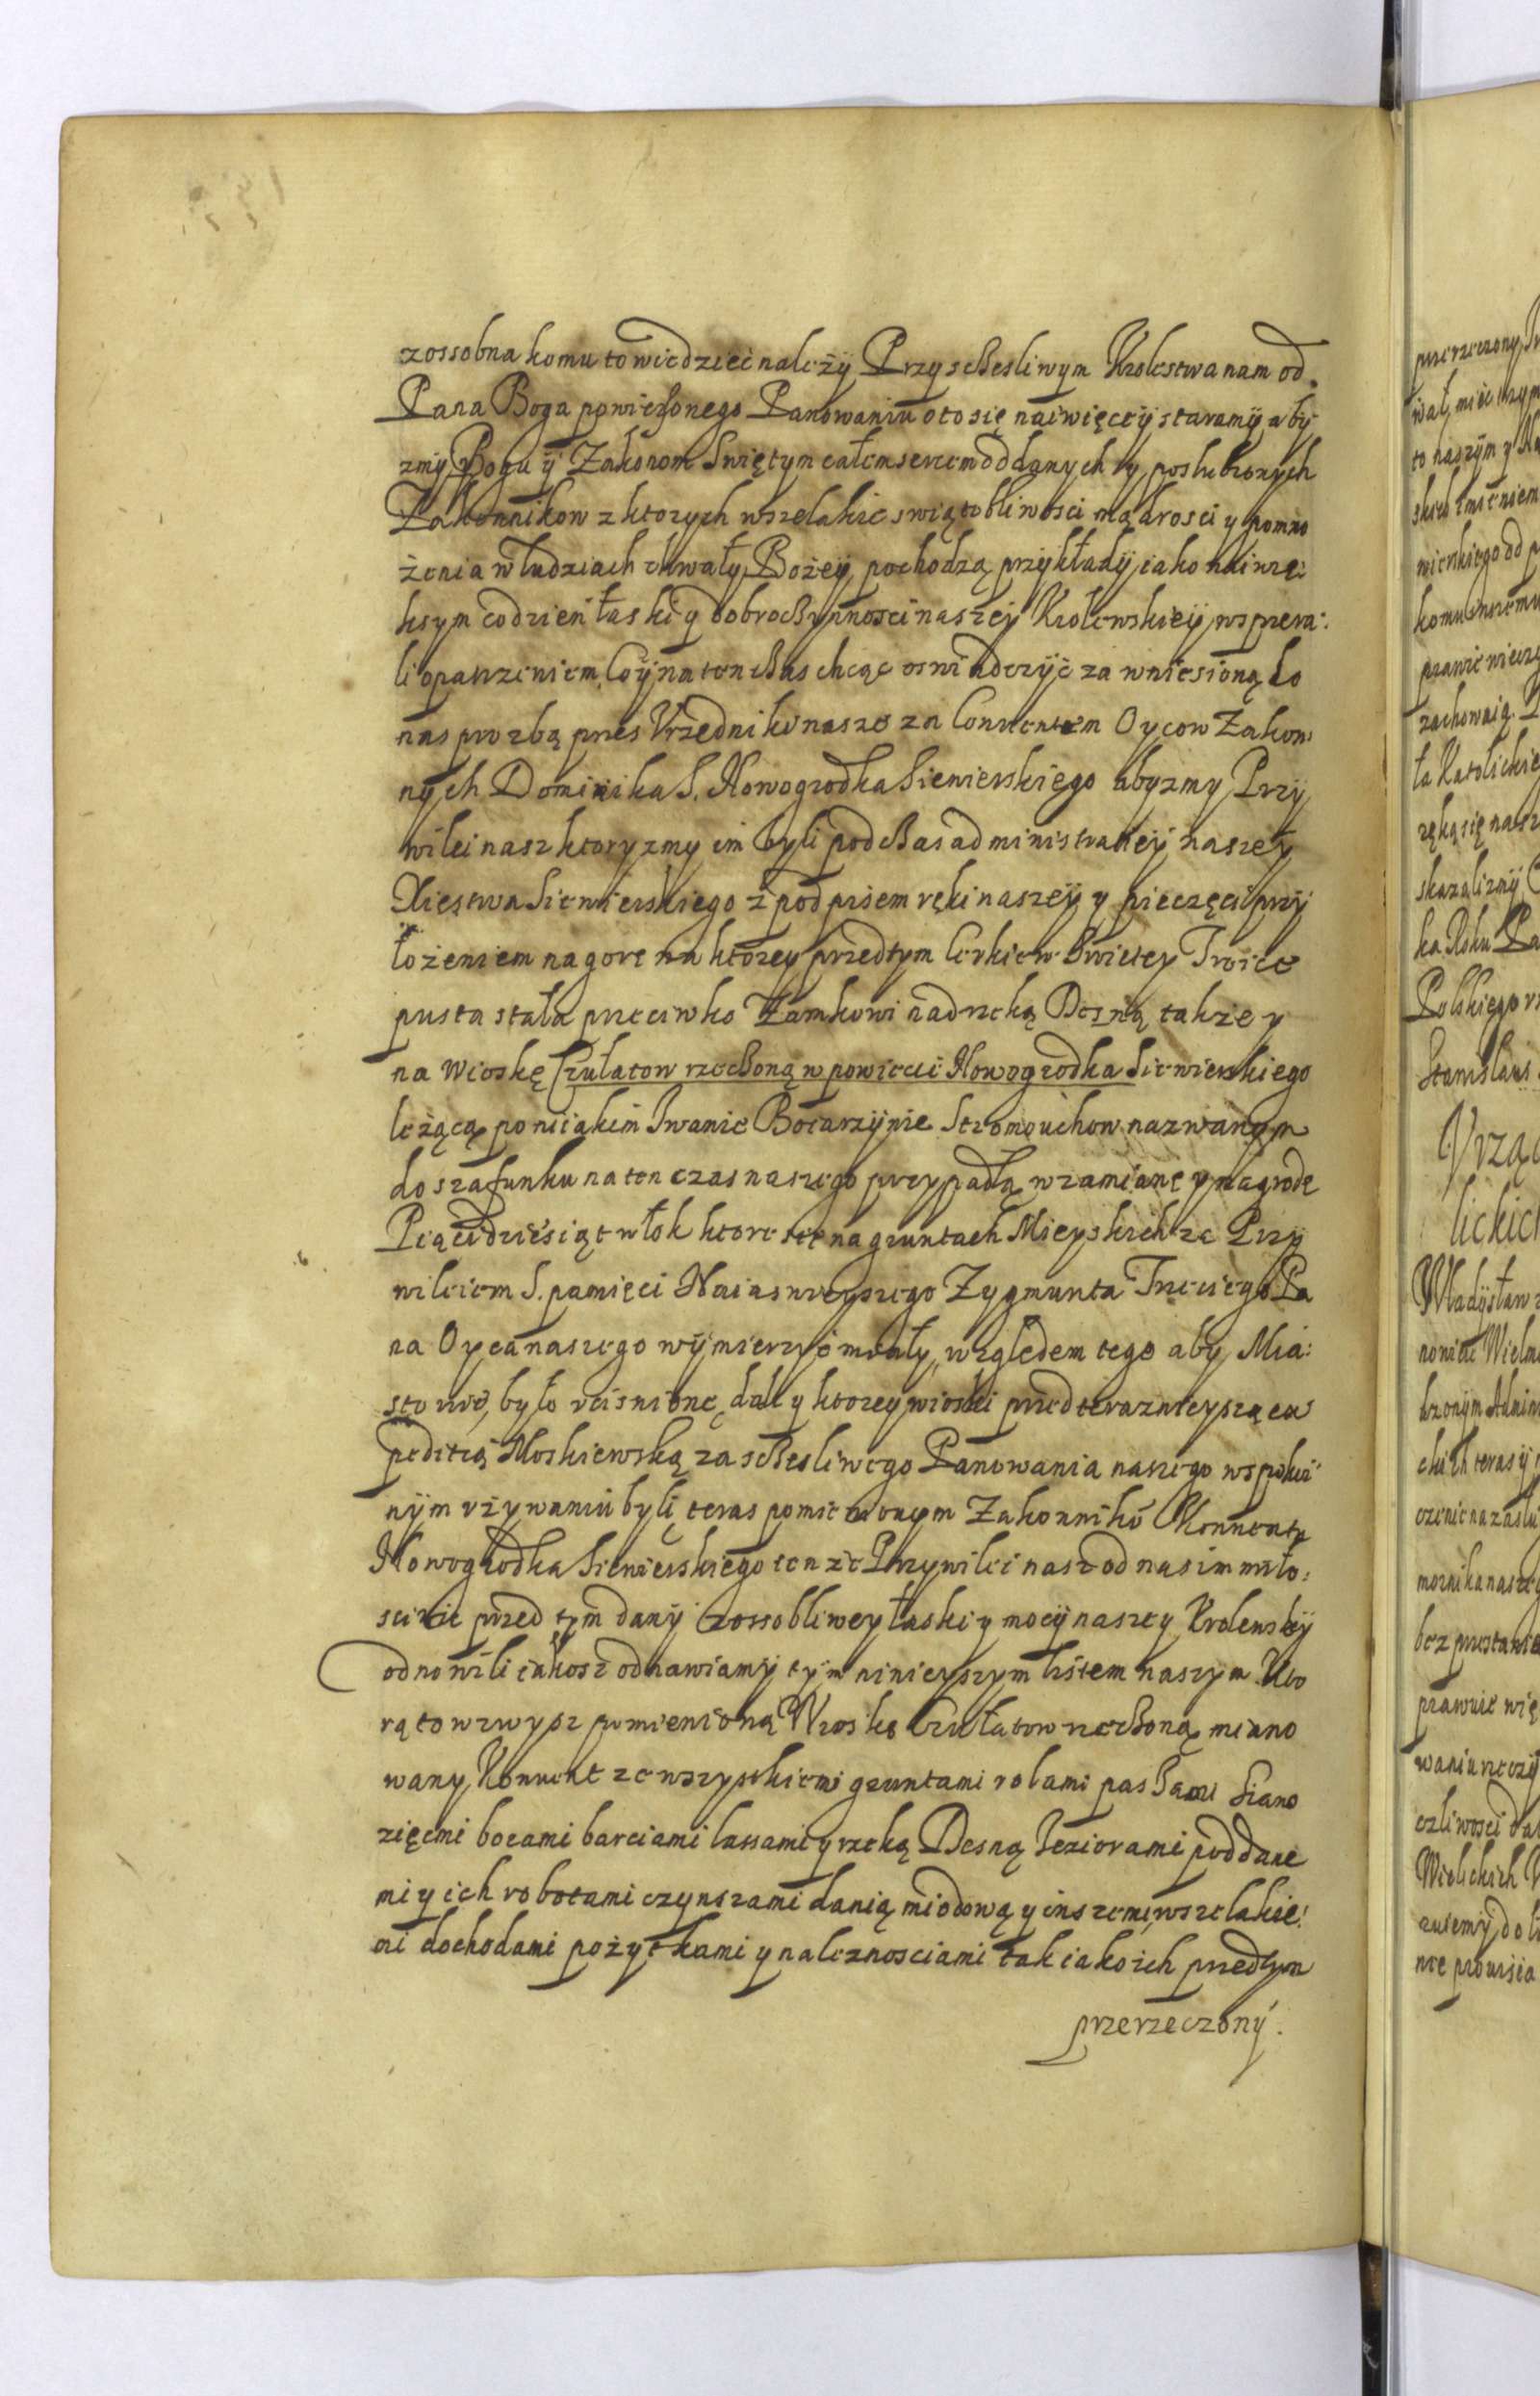 zossobna komu to wiedzieć należy Przy scżesliwym Krolestwa nam od
Pana Boga powierżonego Panowaniu o to się naiwięcey staramy aby
zmy Bogu y Zakonom Swiętym całem sercem oddanych y poslubionych
Zakonnikow z ktorych wszelakie swiątobliwosci mądrosci y pomno
żenia w ludziach chwały Bożey pochodzą przykłady iako naiwię:
kszym codzień łaski y dobrocżynnosci naszey Krolewskiey wspiera:
li opatrzeniem. Co y na ten cżas chcąc oswiadczyć za wniesioną do
nas prozbą przes Vrzędniki nasze za Conuentem Oycow Zakon
nych Dominika S. Nowogrodka Siewierskiego abyzmy Przy
wilei nasz ktoryzmy im byli pod cżas administratiey naszey
Xięstwa Siewierskiego z podpisem ręki naszey y pieczęci przy
łożeniem na gore na ktorey przedtym Cerkiew Swietey Troice
pusta stała przeciwko Zamkowi nad rzeką Desną także y
na Wioskę Czułatow rzecżoną w powiecie Nowogrodka Siewierskiego
leżącą po nieiakim Iwanie Bocarzynie Stromouchow nazwanym
do szafunku na ten czas naszego przypadłą w zamianę y nagrodę
Pięcidziesiąt włok ktore sie na gruntach Mieyskich ze Przy
wileiem S. pamięci Naiasnieyszego Zygmunta Trzeciego Pa
na Oyca naszego wymierzyć miały, względem tego aby Mia:
sto nie było vcisnione, dali y ktorey wioski przed teraznieyszą ex
peditią Moskiewską za scżesliwego Panowania naszego w spokoi
nym vżywaniu byli teras pomienionym Zakonniko Konuentu
Nowogrodka Siewierskiego tenże Przywilei nasz od nas im miło:
sciwie przed tym dany z ossobliwey łaski y mocy naszey Krolewsky
odnowili iakosz odnawiamy tym ninieyszym listem naszym Kto
rą to wzwysz pomienioną Wioskę Czułatow rzecżoną miano
wany Konuent ze wszystkiemi gruntami rolami pasżami Siano
zięcmi bocami barciami lassami y rzeką Desną Ieziorami poddane
mi y ich robotami czynszami danią miodową y inszemi wszelakie:
mi dochodami pożytkami y należnosciami tak iako ich przedtym
przerzeczony.